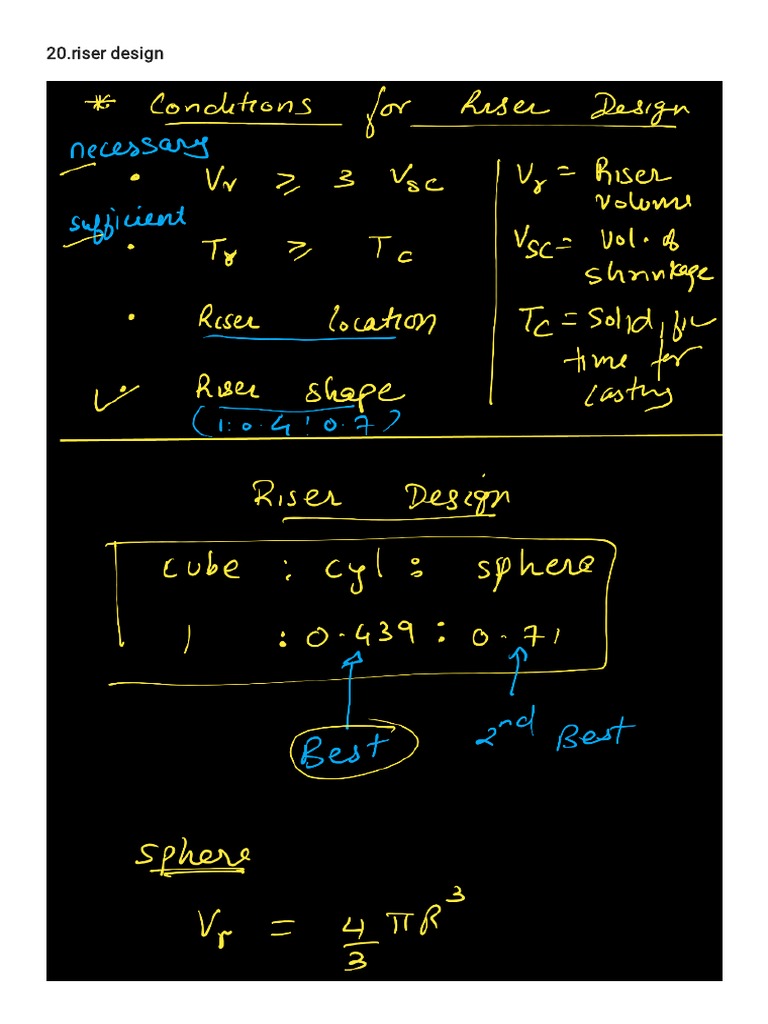 20.riser design
* Conditions for Riser Design
necessary
• Vr ⩾ 3 Vsc
sufficient
• Tr ⩾ Tc
• Riser location
✓ • Riser shape
(1:0.4:0.7)
Vr = Riser
volume
Vsc = Vol. of
shrinkage
Tc = Solidific
time for
casting
Riser Design
cube : cyl : sphere
1 : 0.439 : 0.71
Best
2nd Best
Sphere
Vr = 4/3 πR³